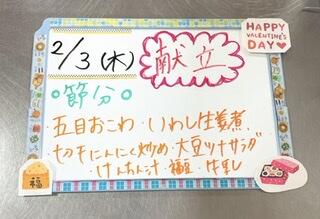 HAPPY
VALENTINE'S
DAY
2/3(木)
献立
節分
・五目おこわ・いわし生姜煮
・切干にんにく炒め・大豆ツナサラダ
・けんちん汁・福豆・牛乳
福